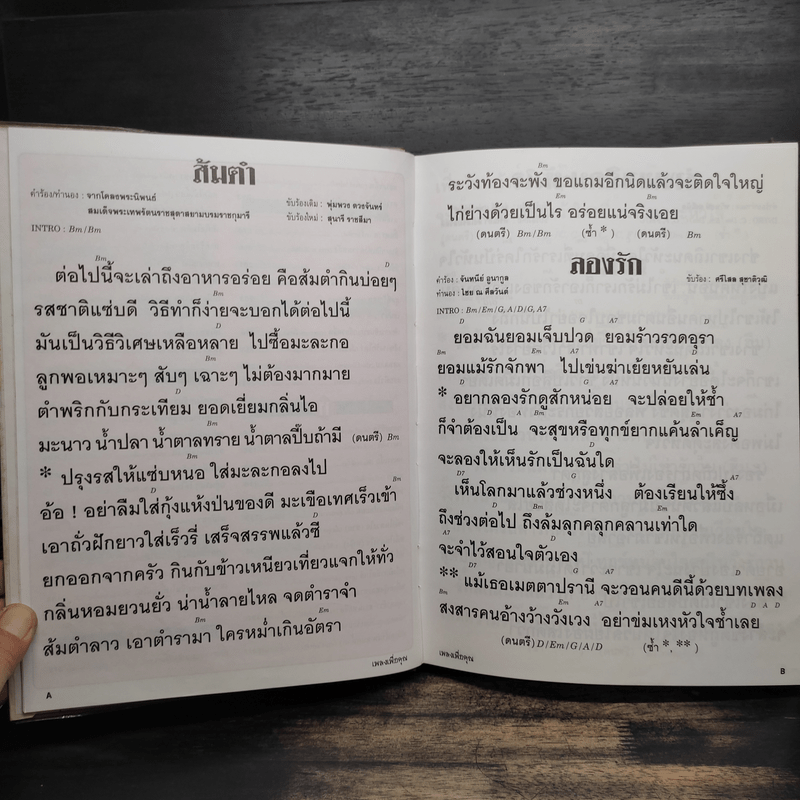 ส้มตำ
คำร้อง/ทำนอง : จากโคลงพระนิพนธ์
สมเด็จพระเทพรัตนราชสุดาสยามบรมราชกุมารี
ขับร้องเดิม : พุ่มพวง ดวงจันทร์
ขับร้องใหม่ : สุนารี ราชสีมา
INTRO : Bm/Bm
Bm D
ต่อไปนี้จะเล่าถึงอาหารอร่อย คือส้มตำกินบ่อยๆ
Bm
รสชาติแซ่บดี วิธีทำก็ง่ายจะบอกได้ต่อไปนี้
D
มันเป็นวิธีวิเศษเหลือหลาย ไปซื้อมะละกอ
Bm
ลูกพอเหมาะๆ สับๆ เฉาะๆ ไม่ต้องมากมาย
D
ตำพริกกับกระเทียม ยอดเยี่ยมกลิ่นไอ
มะนาว น้ำปลา น้ำตาลทราย น้ำตาลปี๊บถ้ามี (ดนตรี) Bm
Bm
* ปรุงรสให้แซ่บหนอ ใส่มะละกอลงไป
D Bm
อ้อ ! อย่าลืมใส่กุ้งแห้งป่นของดี มะเขือเทศเร็วเข้า
D
เอาถั่วฝักยาวใส่เร็วรี่ เสร็จสรรพแล้วซี
ยกออกจากครัว กินกับข้าวเหนียวเที่ยวแจกให้ทั่ว
กลิ่นหอมยวนยั่ว น่าน้ำลายไหล จดตำราจำ
Bm Em
ส้มตำลาว เอาตำรามา ใครหม่ำเกินอัตรา
เพลงเพื่อคุณ
A
Bm
ระวังท้องจะพัง ขอแถมอีกนิดแล้วจะติดใจใหญ่
Em Bm
ไก่ย่างด้วยเป็นไร อร่อยแน่จริงเอย
(ดนตรี) Bm/Bm (ซ้ำ *) (ดนตรี) Bm
ลองรัก
คำร้อง : จันทนีย์ อูนากูล
ทำนอง : ไชย ณ ศีลวันต์
ขับร้อง : ศรีไสล สุชาติวุฒิ
INTRO : Bm/Em/G, A/D/G, A7
D G A7 D
ยอมฉันยอมเจ็บปวด ยอมร้าวรวดอุรา
Bm Em A7 D
ยอมแม้รักจักพา ไปเข่นฆ่าเย้ยหยันเล่น
D G A7
* อยากลองรักดูสักหน่อย จะปล่อยให้ช้ำ
D A D Em A7
ก็จำต้องเป็น จะสุขหรือทุกข์ยากแค้นลำเค็ญ
D
จะลองให้เห็นรักเป็นฉันใด
D7 G A7
เห็นโลกมาแล้วช่วงหนึ่ง ต้องเรียนให้ซึ้ง
D Bm Em
ถึงช่วงต่อไป ถึงล้มลุกคลุกคลานเท่าใด
A7 D
จะจำไว้สอนใจตัวเอง
D7 G A7 D
** แม้เธอเมตตาปรานี จะวอนคนดีนี้ด้วยบทเพลง
Bm Em A7 D A D
สงสารคนอ้างว้างวังเวง อย่าข่มเหงหัวใจช้ำเลย
(ดนตรี) D/Em/G/A/D (ซ้ำ *, **)
เพลงเพื่อคุณ
B